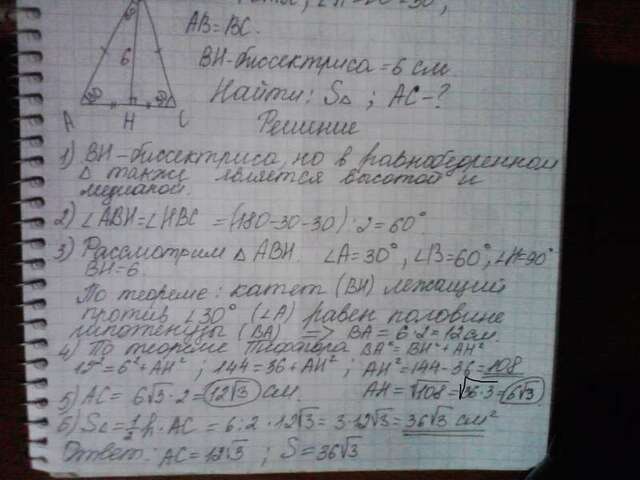 AB=BC.
BH-биссектриса=6 см
Найти: S△ ; AC-?
6
A H C
Решение
1) BH-биссектриса, но в равнобедренном
△ также является высотой и
медианой.
2) ∠ABH=∠HBC =(180-30-30):2=60°
3) Рассмотрим △ ABH. ∠A=30°, ∠B=60°, ∠H=90°
BH=6.
По теореме: катет (BH) лежащий
против ∠30° (∠A) равен половине
гипотенузы (BA) => BA=6·2=12см.
4) По теореме Пифагора BA²=BH²+AH²
12²=6²+AH² ; 144=36+AH² ; AH²=144-36=108
AH=√108=√36·3=6√3
5) AC= 6√3·2=12√3 см.
6) S△=½h·AC = 6:2·12√3=3·12√3=36√3 см²
Ответ: AC=12√3 ; S=36√3